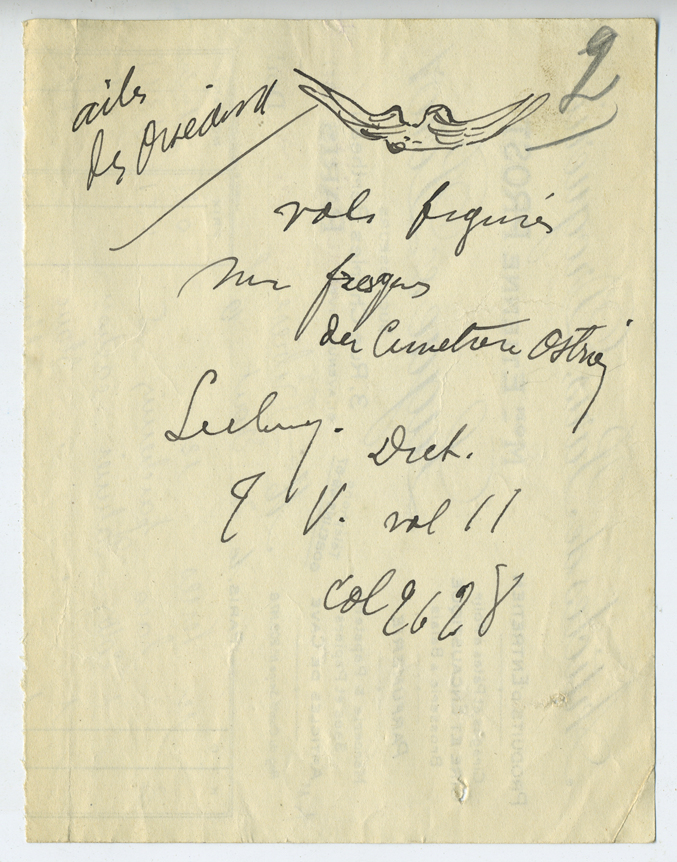 2
ailes
des
vols figurés
sur fresques
der Cimetière Ostrien
Leclercq. Dict.
T V. vol 11
col 2628